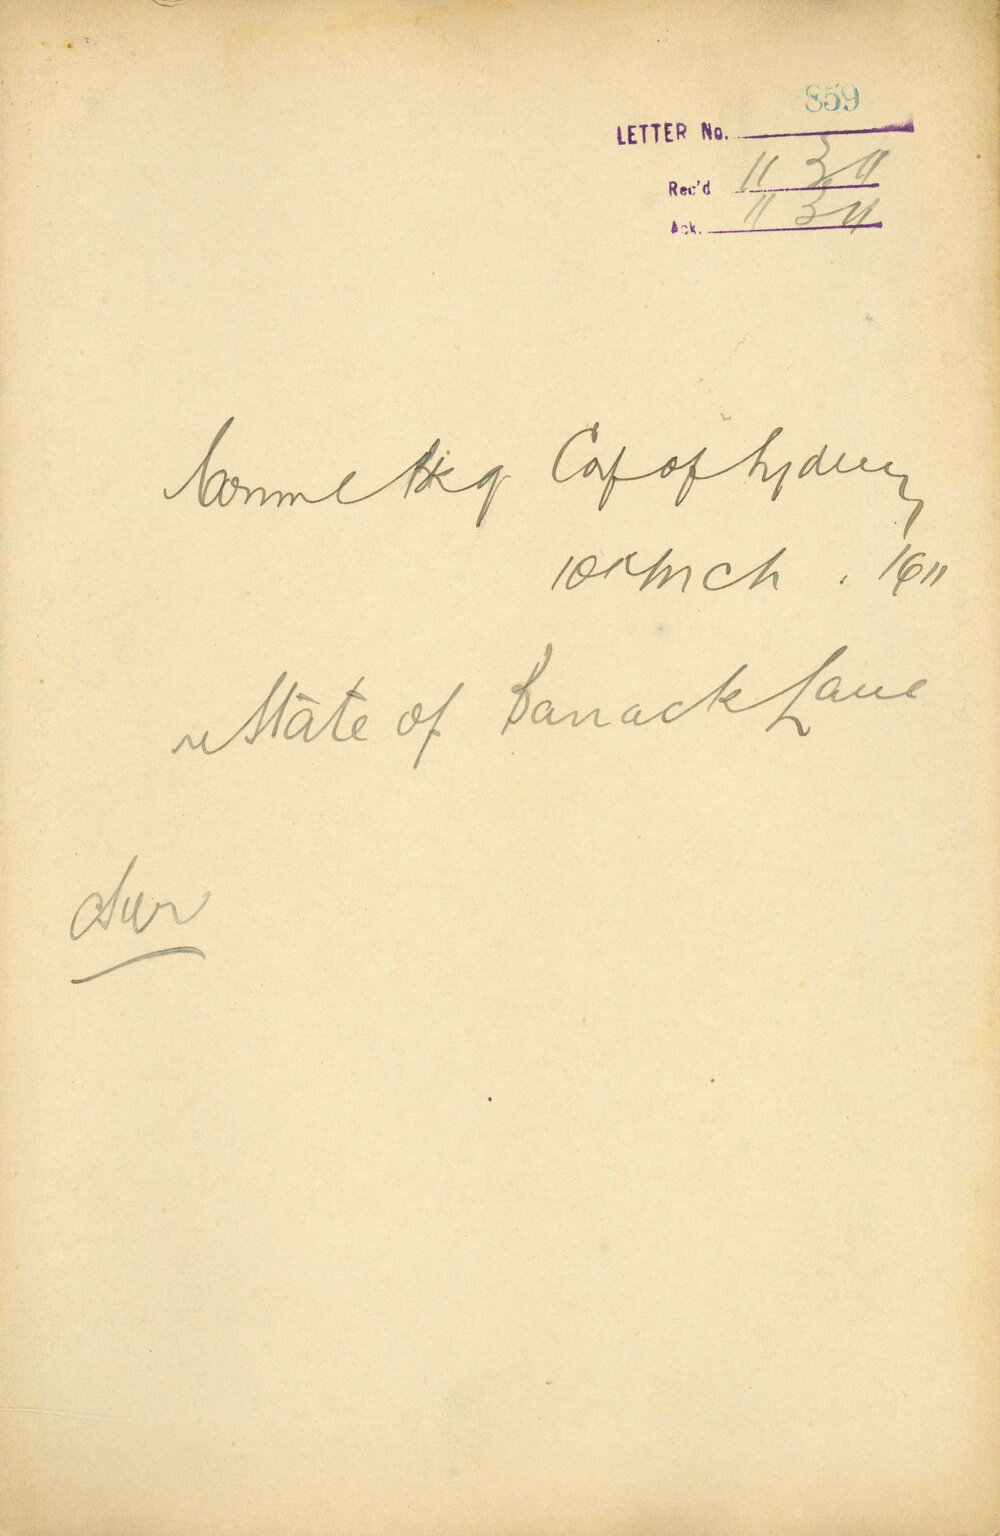 859
LETTER No.
Rec'd 11 3 11
Ack. 11 3 11
Cof of Sydney
10th Mch . 1911
re State of Barrack Lane